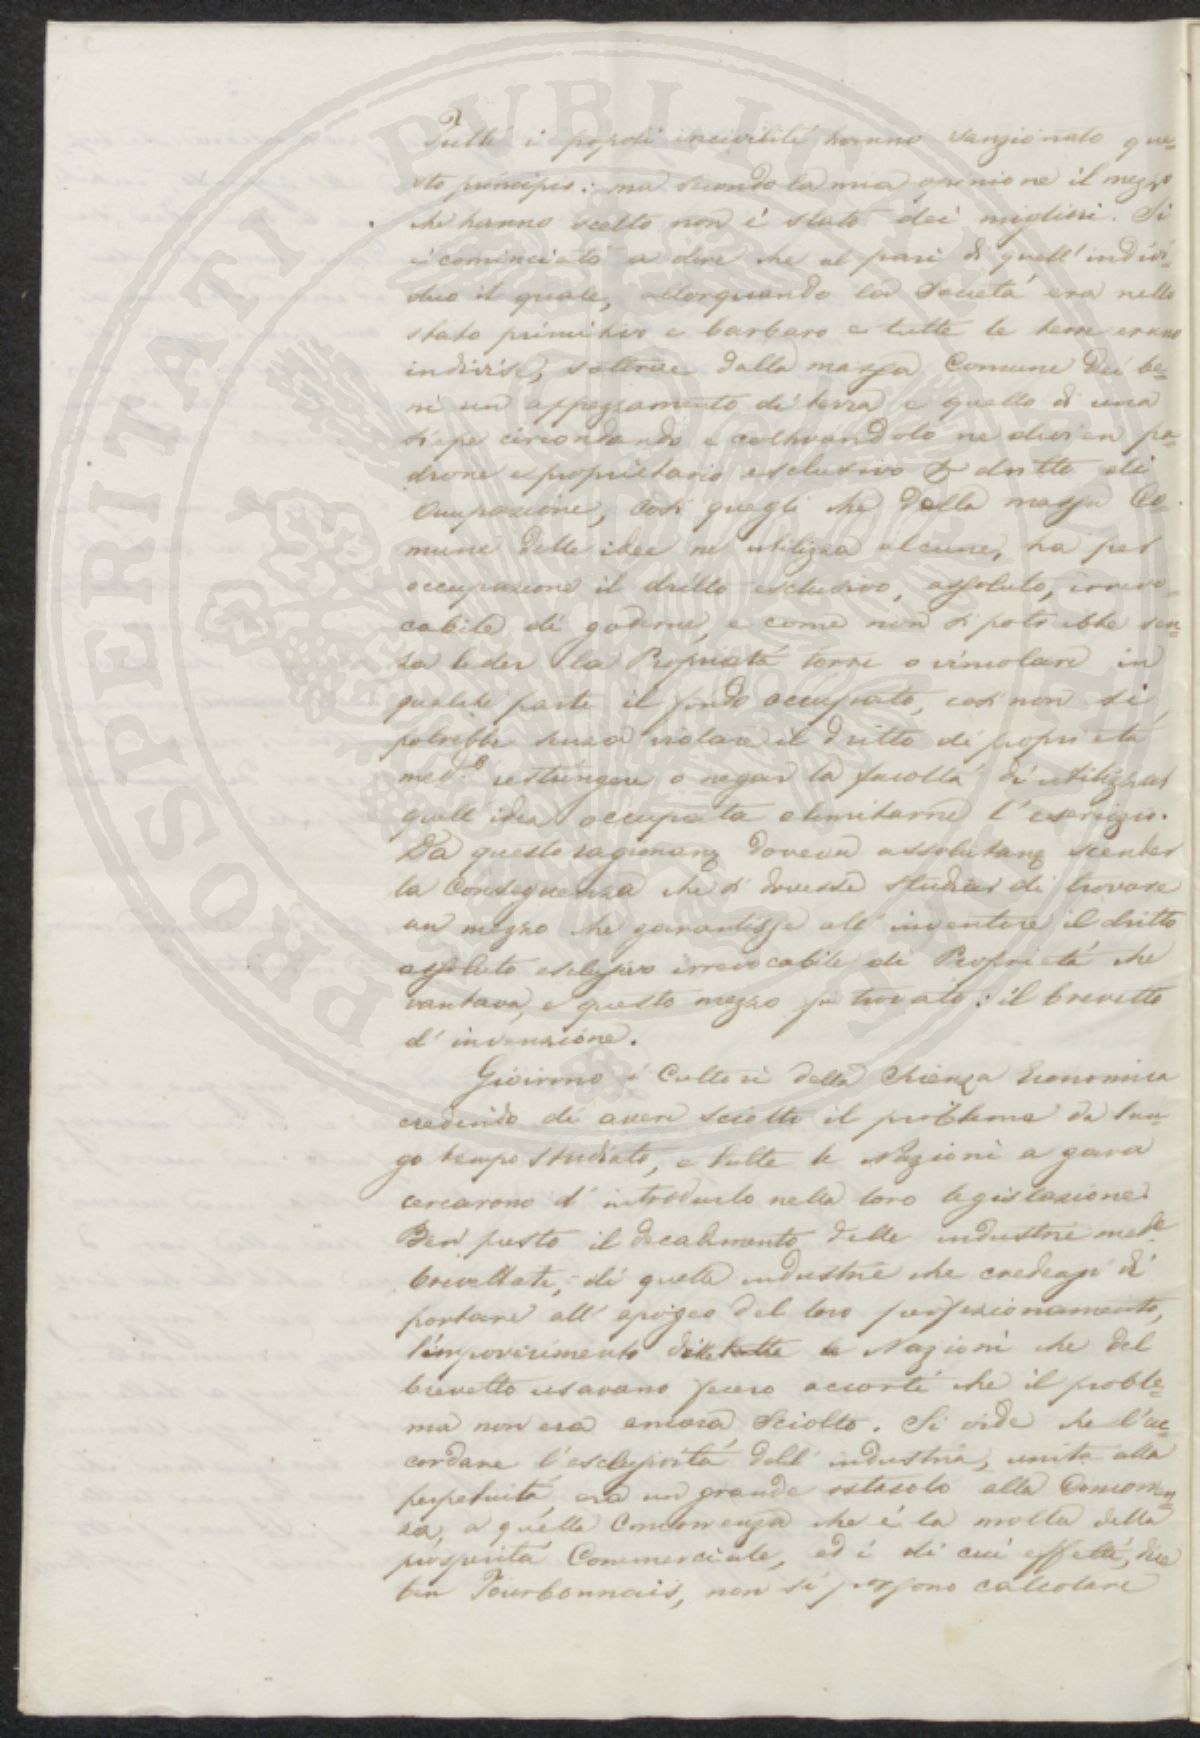 Tutti i popoli inciviliti hanno sanzionato que-
sto principio: ma secondo la mia opinione il mezzo
che hanno scelto non è stato dei migliori. Si
è cominciato a dire che al pari di quell' indivi-
duo il quale, allorquando la Società era nello
stato primitivo e barbaro e tutte le terre erano
indivise, sottrae dalla massa Comune dei be-
ni un appezzamento di terra e quello di una
siepe circondando e coltivandolo ne divien pa-
drone e proprietario esclusivo per dritto di
Occupazione, così quegli che dalla massa Co-
mune delle idee ne utilizza alcune, ha per
occupazione il dritto esclusivo, assoluto, irrevo-
cabile di goderne, e come non si potrebbe sen-
za leder la Proprietà torre o vincolare in
qualche parte il fondo occupato, così non si
potrebbe senza violare il dritto di proprietà
med.o restringere o negar la facoltà di utilizzar
quell' idea occupata o limitarne l' esercizio.
Da questo ragionam.to doveva assolutam.te scender
la Conseguenza che si dovesse studiar di trovare
un mezzo che garantisse all' inventore il dritto
assoluto esclusivo irrevocabile di Proprietà che
vantava, e questo mezzo fu trovato: il brevetto
d' invenzione.
Gioirono i Cultori della Scienza Economica
credendo di aver sciolto il problema da lun-
go tempo studiato, e tutte le Nazioni a gara
cercarono d' introdurlo nella loro legislazione.
Ben presto il decadimento delle industrie med.e
brevettate, di quelle industrie che credeasi di
portare all' apogeo del loro perfezionamento,
l'impoverimento delle tutte le Nazioni che del
brevetto usavano fecero accorti che il proble-
ma non era ancora Sciolto. Si vide che l'ac-
cordare l'esclusività dell' industria, unita alla
perpetuità, era un grande ostacolo alla Concorren-
za, a quella Concorrenza che è la molla della
prosperità Commerciale, ed i di cui effetti, dice
ben Tourbonnais, non si possono calcolare